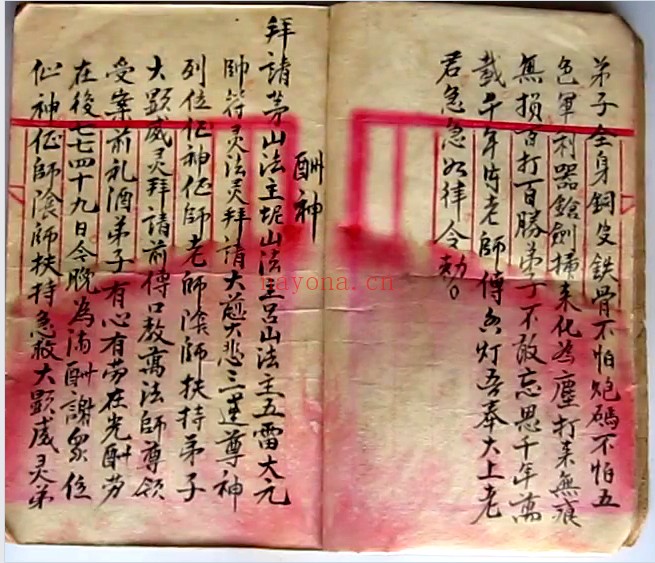 弟子全身銅皮鉄骨不怕炮碼不怕五
色軍利器鎗劍掃来化為塵打来無痕
無損百打百勝弟子不敢忘恩千年萬
載千年时老師傅灯吾奉大上老
君急急如律令勅
酬神
拜請茅山法主坭山法主呂山法主五雷大元
帥符灵法灵拜請大慈大悲三道尊神
列位仙神仙師老師陰師扶持弟子
大顕威灵拜請前傳口教萬法師尊領
受案前礼酒弟子有心有劳在先酬劳
在後七七四十九日今晚為満酬謝眾位
仙神仙師陰師扶持急救大顕威灵弟
nayona.cn